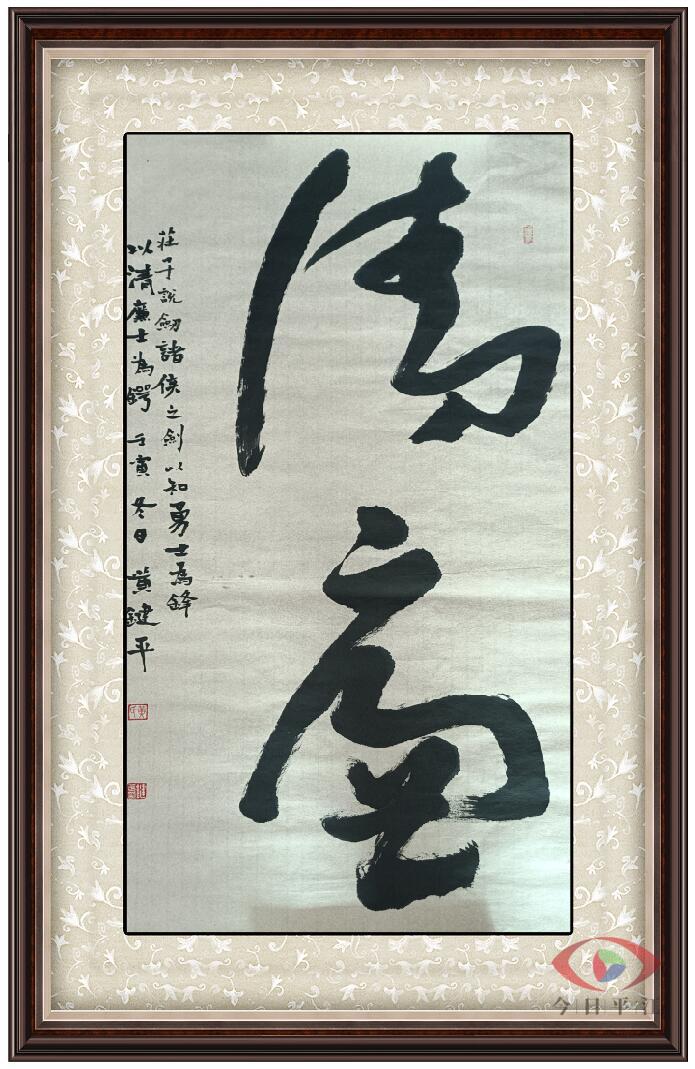 清廉
莊子說劍諸侯之劍以知勇士為鋒
以清廉士為鍔 壬寅冬日 黄鍵平
今日平江